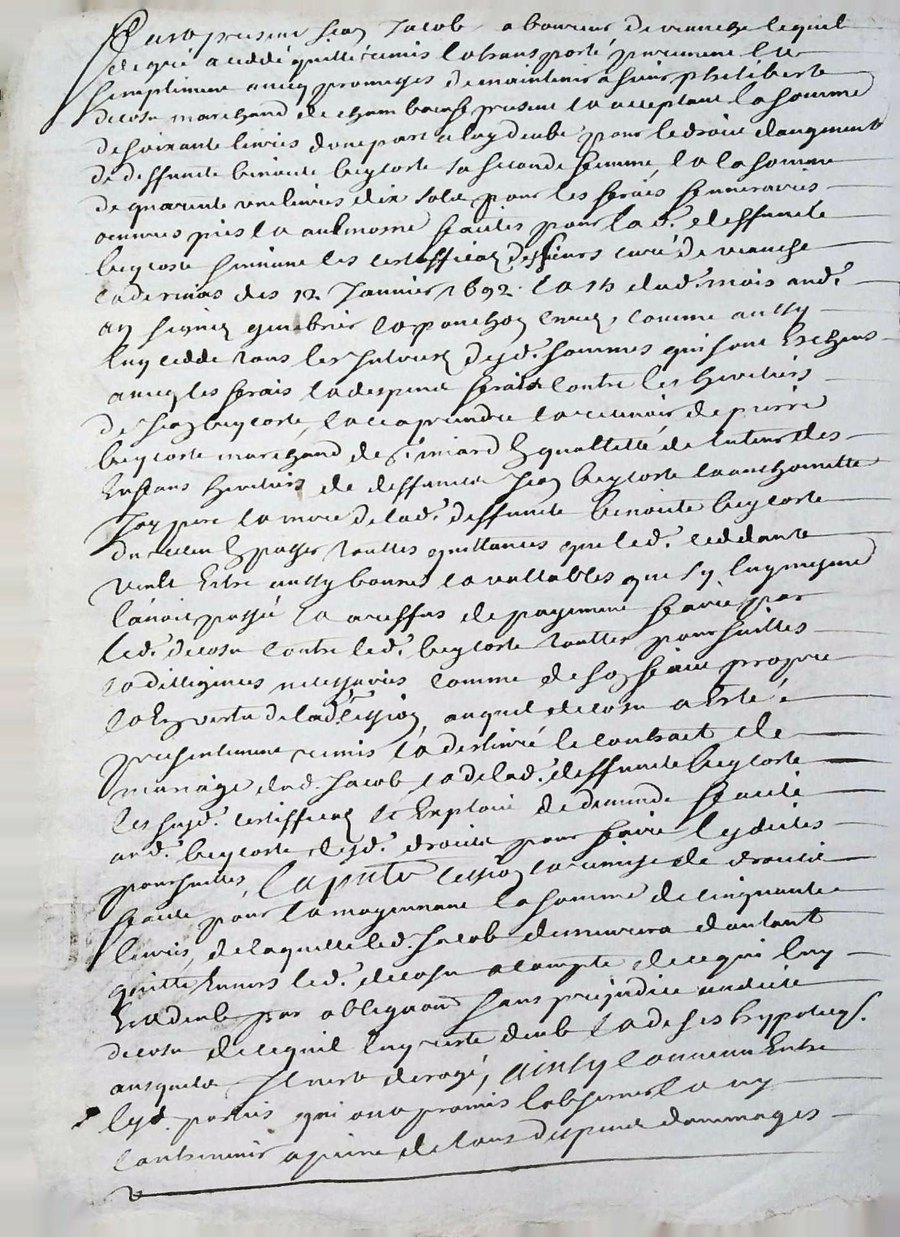 Fut present Jean Jacob laboureur de vranche lequel
de gré a ceddé quitté remis et transporté purement et
simplement avecq promesses de maintenir a sieur philiberte
decosu marchand de chambarese present et acceptant la somme
de soixante livres d'une part a luy deube pour le droit daugment
de deffuncte benoite beycoste sa seconde femme, et la somme
de quarente une livres dix sols pour les frais funeraires
œuvres pies et aulmosne faites pour lad. deffuncte
beycoste suivant les certifficatz des sieurs curé de vranche
et dermas des 12 Janvier 1692 et 15 dud. mois and.
an signez et ponchon curez, comme aussy
luy cedde tous les interestz desd. sommes qui sont escheus
avecq les frais et despens faits contre les heritiers
de Jean beycoste, et a prendre et recevoir de pierre
beycoste marchand de St. miard en quallitté de tuteur des
enfans heritiers de deffunct Jean beycoste
pere et mere de lad. deffuncte benoite beycoste
du receu en passer touttes quittances que led. ceddant
veult estre aussy bonnes et vallables que sy luy mesme
l'avoit passé et a reffus de payement faire par
led. decosu contre led. beycoste touttes poursuittes
et dilligences necessaires comme de son faict propre
et en vertu de lad. cession, auquel decosu a esté
presentement remis et deslivré le contract de
mariage dud. Jacob et de lad. deffuncte beycoste
les susd. certifficatz et exploict de demande faicte
aud. beycoste desd. droits pour faire lesdites
poursuittes, la pnte cession et remise de droits
faicte pour et moyennant la somme de cinquante
livres, de laquelle led. Jacob demeurera d'autant
quitte envers led. decosu a compte de ce qui luy
est deub par obligation sans prejudice audit
decosu de ce quil luy reste deub et de ses hypotecqs.
ausquels Il n'est derogé, ainsy convenu entre
lesd. parties qui ont promis l'observer et ny
contrevenir a peine de tous despens dommages